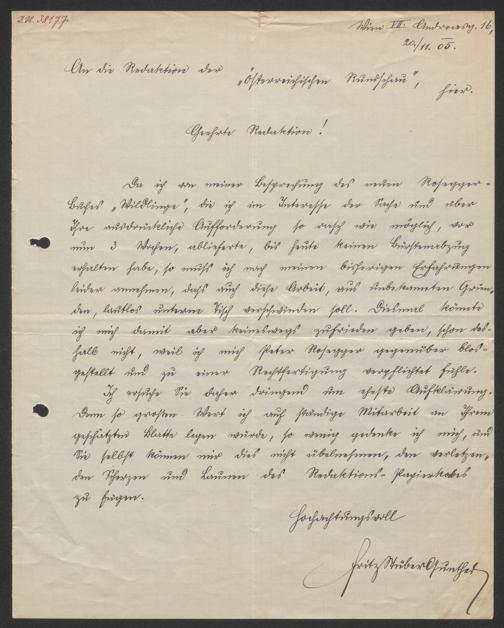 I.N. 38177
Wien VII. Andreasg. 16,
20./11. 05.
An die Redaktion der
„Österreichischen Rundschau",
hier.
Geehrte Redaktion!
Da ich von meiner Besprechung des neuen Rosegger-
Buches „Wildlinge", die ich im Interesse der Sache und über
Ihre ausdrückliche Aufforderung so rasch wie möglich, vor
nun 3 Wochen, ablieferte, bis heute keinen Bürstenabzug
erhalten habe, so muß ich nach meinen bisherigen Erfahrungen
leider annehmen, daß auch diese Arbeit, aus unbekannten Grün-
den, lautlos unterm Tisch verschwinden soll. Diesmal könnte
ich mich damit aber keineswegs zufrieden geben, schon des-
halb nicht, weil ich mich Peter Rosegger gegenüber blos-
gestellt und zu einer Rechtfertigung verpflichtet fühle.
Ich ersuche Sie daher dringend um eheste Aufklärung.
Denn so großen Wert ich auf ständige Mitarbeit an Ihrem
geschätzten Blatte legen würde, so wenig gedenke ich mich, und
Sie selbst können mir dies nicht übelnehmen, den verletzen-
den Scherzen und Launen des Redaktions-Papierkorbes
zu fügen.
Hochachtungsvoll
Fritz Stüber Gunther